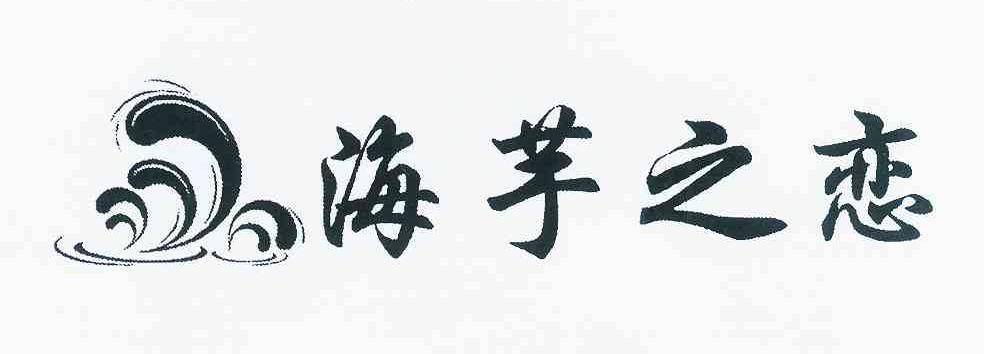 海芋之恋